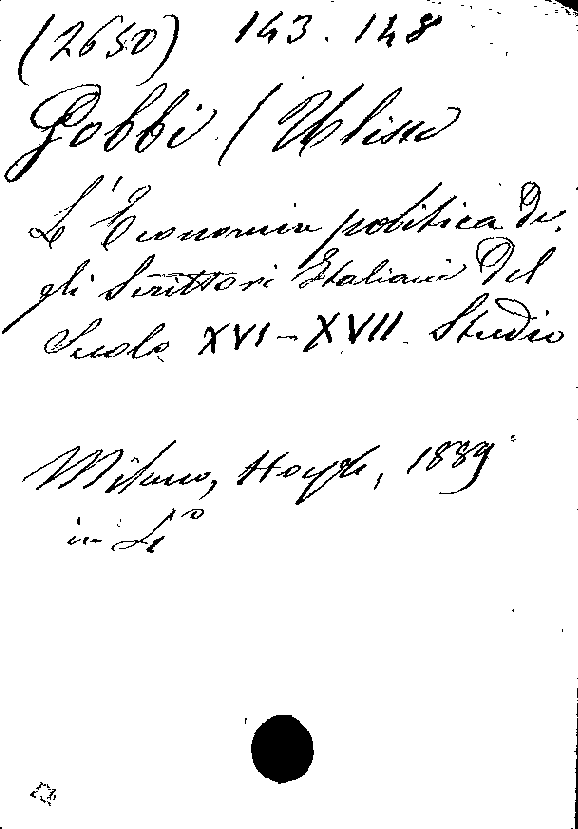 (2650) 143. 148
Gobbi / Ulisse
L'Economia politica de.
gli Scrittori Italiani Del
Secolo XVI-XVII Studio
Milano, Hoepli, 1889
in 4°